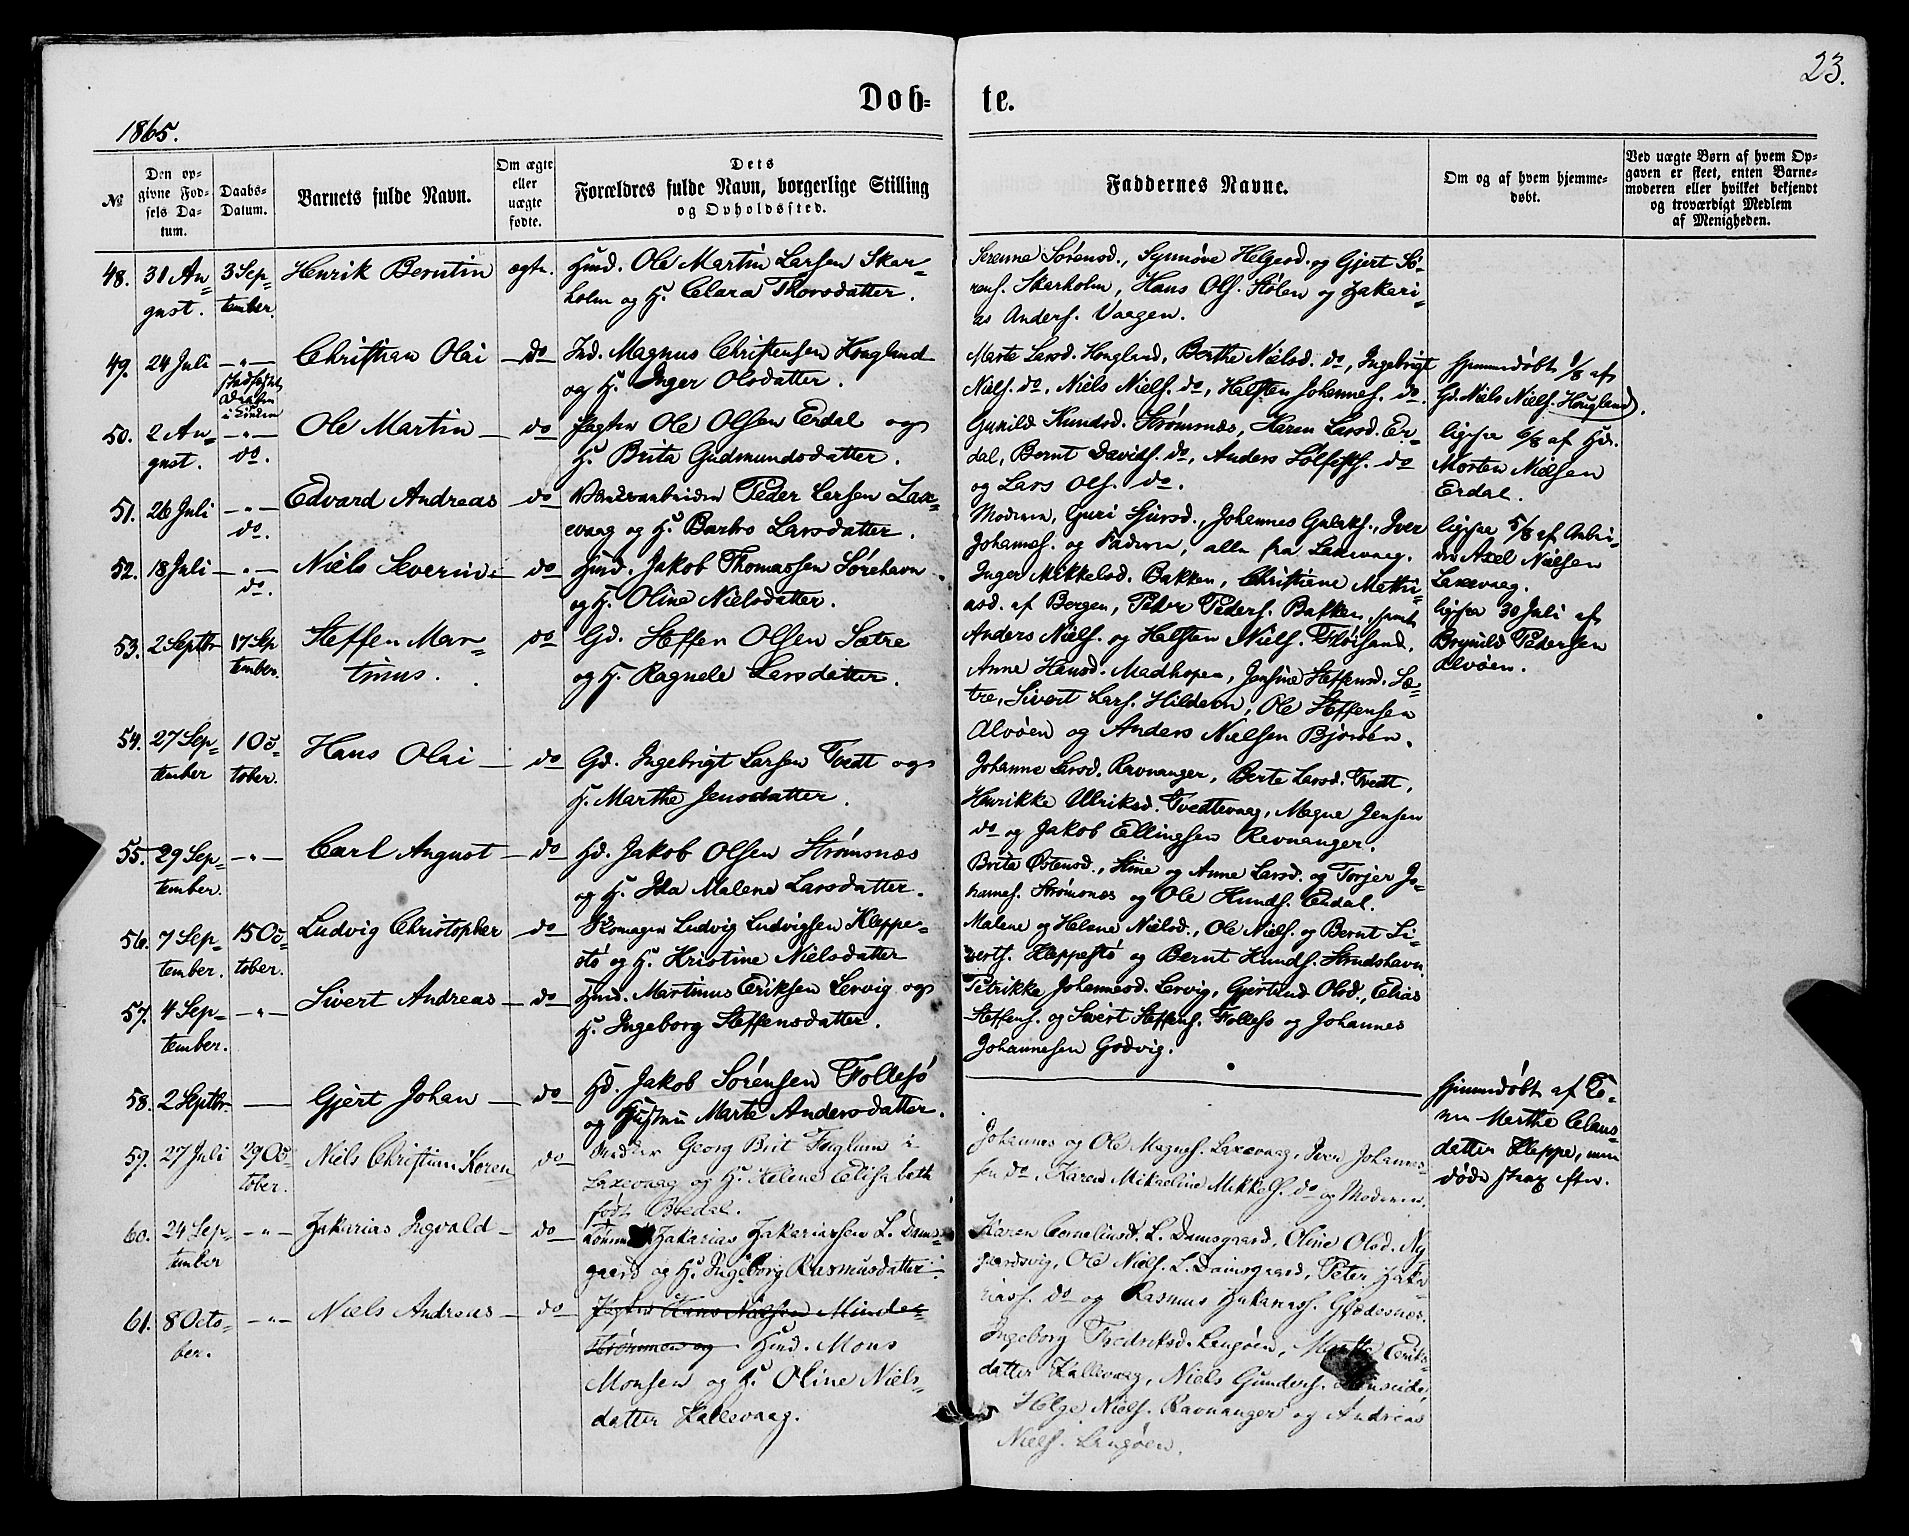 23.
Døb- te.
1865.
№
Den op-
givne Fød-
sels Da-
tum.
Daabs-
Datum.
Barnets fulde Navn.
Om ægte
eller
uægte
fødte.
Dets
Forældres fulde Navn, borgerlige Stilling
og Opholdssted.
Faddernes Navne.
Om og af hvem hjemme-
døbt.
Ved uægte Børn af hvem Op-
gaven er skeet, enten Barne-
moderen eller hvilket bekjendt
og troværdigt Medlem
af Menigheden.
48. 31 Au-
gust.
3 Sep-
tember.
Henrik Berntin
ægte.
Hmd. Ole Martin Larsen Skar-
holm og H. Clara Thorsdatter.
Serenne Sørensd., Synnøve Helgesd. og Gjert Sø-
rens. Skarholm, Hans Ols. Stølen og Zakari-
as Anders. Vaagen.
49. 24 Juli
—"—
Christian Olai
do
Ind. Magnus Christensen Hougland
og H. Inger Olsdatter.
Marte Larsd. Hougland, Berthe Nielsd. do, Ingebrigt
Niels. do, Niels Niels. do, Halsten Johannes. do.
Hjemmedøbt 1/8 af
Gd. Niels Niels. Hougland.
50. 2 Au-
gust.
—"—
do.
Ole Martin
do
Jagtm Ole Olsen Erdal og
H. Brita Gudmundsdatter.
Gunild Knudsd. Strømsnæs, Karen Larsd. Er-
dal, Bernt Davids. do, Anders Solfests. do
og Lars Ols. do.
ligesaa 6/8 af Hd.
Morten Nielsen
Erdal.
51. 26 Juli
—"—
do.
Edvard Andreas
do
Peder Larsen Lax-
evaag og H. Barbro Larsdatter.
Moderen, Guri Sjursd., Johannes Gulaks., Iver
Johannes. og Faderen, alle fra Laxevaag.
ligesaa 5/8 af Arbei-
der Axel Nielsen
Laxevaag.
52. 18 Juli
—"—
do.
Niels Severin
do
Hmd. Jakob Thomassen Sørehavn
og H. Oline Nielsdatter.
Inger Mikkelsd. Bakken, Christiene Mathi-
asd. af Bergen, Peder Peders. Bakken, samt
Anders Niels. og Halsten Niels. Fløisand.
ligesaa 30 Juli af
Brynild Pedersen
Alvøen.
53. 2 Septbr
17 Sep
tember.
Steffen Mar-
tinus.
do
Gd. Steffen Olsen Sætre
og H. Ragnele Larsdatter.
Anne Hansd. Madhopen, Jensine Steffensd. Sæ-
tre, Sivert Lars. Hilderen, Ole Steffensen
Alvøen og Anders Nielsen Bjorøen.
54. 27 Sep-
tember
1 Oc-
tober.
Hans Olai
do
Gd. Ingebrigt Larsen Tvedt og
H. Marthe Jensdatter.
Johanne Larsd. Ravnanger, Berte Larsd. Tvedt,
Henrikke Ulriksd. Tvedtevaag, Magne Jensen
do og Jakob Ellingsen Revnanger.
55. 29 Sep-
tember.
—"—
Carl August
do
Hd. Jakob Olsen Strømsnæs
og H. Ida Malene Larsdatter.
Brita Østensd., Stine og Anne Larsd. og Torjer Jo-
hannes. Strømsnes og Ole Knuds. Erdal.
56. 7 Sep-
tember.
15 Oc-
tober.
Ludvig Christopher
do
Skomager Ludvig Ludvigsen Kleppe-
stø og H. Kristine Nielsdatter
Malene og Helene Nielsd., Ole Niels. og Bernt Si-
verts. Kleppestø og Bernt Knuds. Strudshavn
57. 4 Sep-
tember.
—"—
Sivert Andreas
do
Hmd. Martinus Eriksen Lervig og
H. Ingeborg Steffensdatter.
Petrikke Johannesd. Lervig, Gjertrud Olsd., Elias
Steffens. og Sivert Steffens. Follesø og Johannes
Johannesen Godvig.
58. 2 Septbr.
Gjert Johan
do
Hd. Jakob Sørensen Follesø
og Hustru Marte Andersdatter.
Hjemmedøbt af Te-
nne Marthe Claus-
datter Kleppe, men
døde strax efter.
59. 27 Juli
29 Oc-
tober.
Niels Christian Koren
do
Georg Brit Fuglum i
Laxevaag og H. Helene Elisabeth
født Bredal.
Johannes og Ole Magnes. Laxevaag, Iver Johannes-
sen do, Karen Mikaeline Mikkels. do og Moderen.
60. 24 Sep-
tember
—"—
Zakarias Ingvald
do
Zakarias Zakariassen L. Dams-
gaard og H. Ingeborg Rasmusdatter.
Karen Cornelius​d. L. Damsgaard, Oline Olsd. Ny
gaardsvig, Ole Niels. L. Damsgaard, Peter Zaka
rias. do og Rasmus Zakarias. Gjødesnes.
61. 8 Octo-
ber.
—"—
Niels Andreas
do
Jagtm Hans Nielsen Minde
Strømmen og Hmd. Mons
Monsen og H. Oline Niels-
datter Kallevaag.
Ingeborg Fredriksd. Langøen, Marthe Eriks-
datter Kallevaag, Niels Gunders.
Helge Niels. Ravnanger og Andreas
Niels. Langøen.